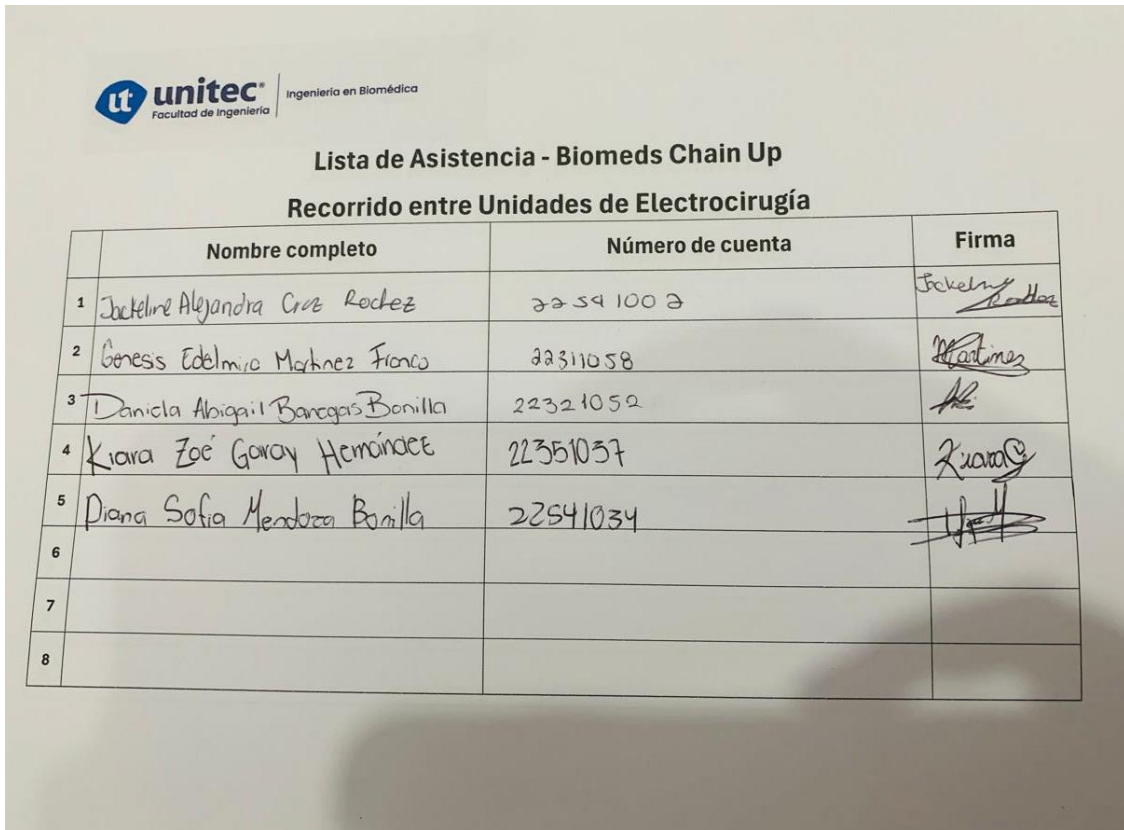 ut unitec® Ingeniería en Biomédica
Facultad de Ingeniería
Lista de Asistencia - Biomeds Chain Up
Recorrido entre Unidades de Electrocirugía
Nombre completo Número de cuenta Firma
1 Jackeline Alejandra Cruz Rochez 22541002 Jackeline Rochez
2 Genesis Edelmira Martinez Franco 22311058 Martinez
3 Daniela Abigail Banegas Bonilla 22321052
4 Kiara Zoé Garay Hernández 22351037 Kiara G
5 Diana Sofia Mendoza Bonilla 22541034
6
7
8